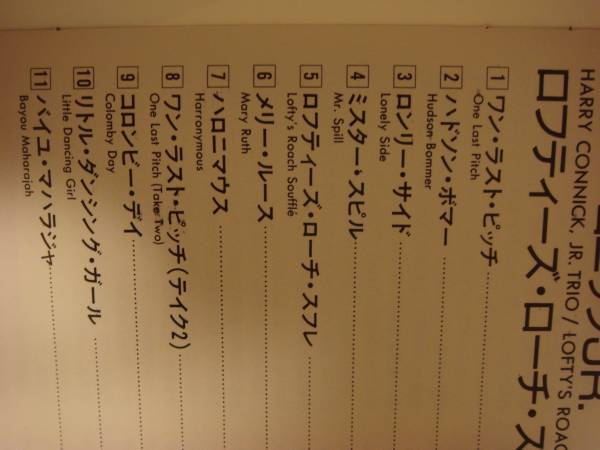 ニックJR.
HARRY CONNICK, JR. TRIO / LOFTY'S ROAC
ロフティーズ・ローチ・ス
1 ワン・ラスト・ピッチ
One Last Pitch
2 ハドソン・ボマー
Hudson Bommer
3 ロンリー・サイド
Lonely Side
4 ミスター・スピル
Mr. Spill
5 ロフティーズ・ローチ・スフレ
Lofty's Roach Soufflé
6 メリー・ルース
Mary Ruth
7 ハロニマウス
Harronymous
8 ワン・ラスト・ピッチ(テイク2)
One Last Pitch (Take Two)
9 コロンビー・デイ
Colomby Day
10 リトル・ダンシング・ガール
Little Dancing Girl
11 バイユ・マハラジャ
Bayou Maharajah